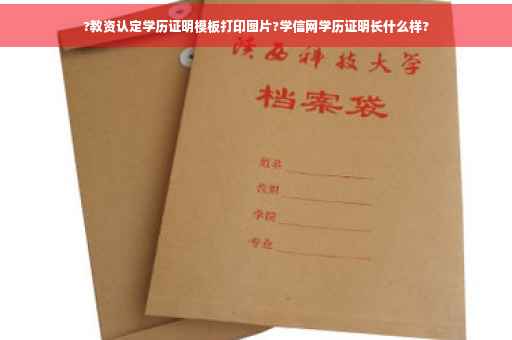 ?教资认定学历证明模板打印图片?学信网学历证明长什么样?
陕西科技大学
档案袋
学院
专业